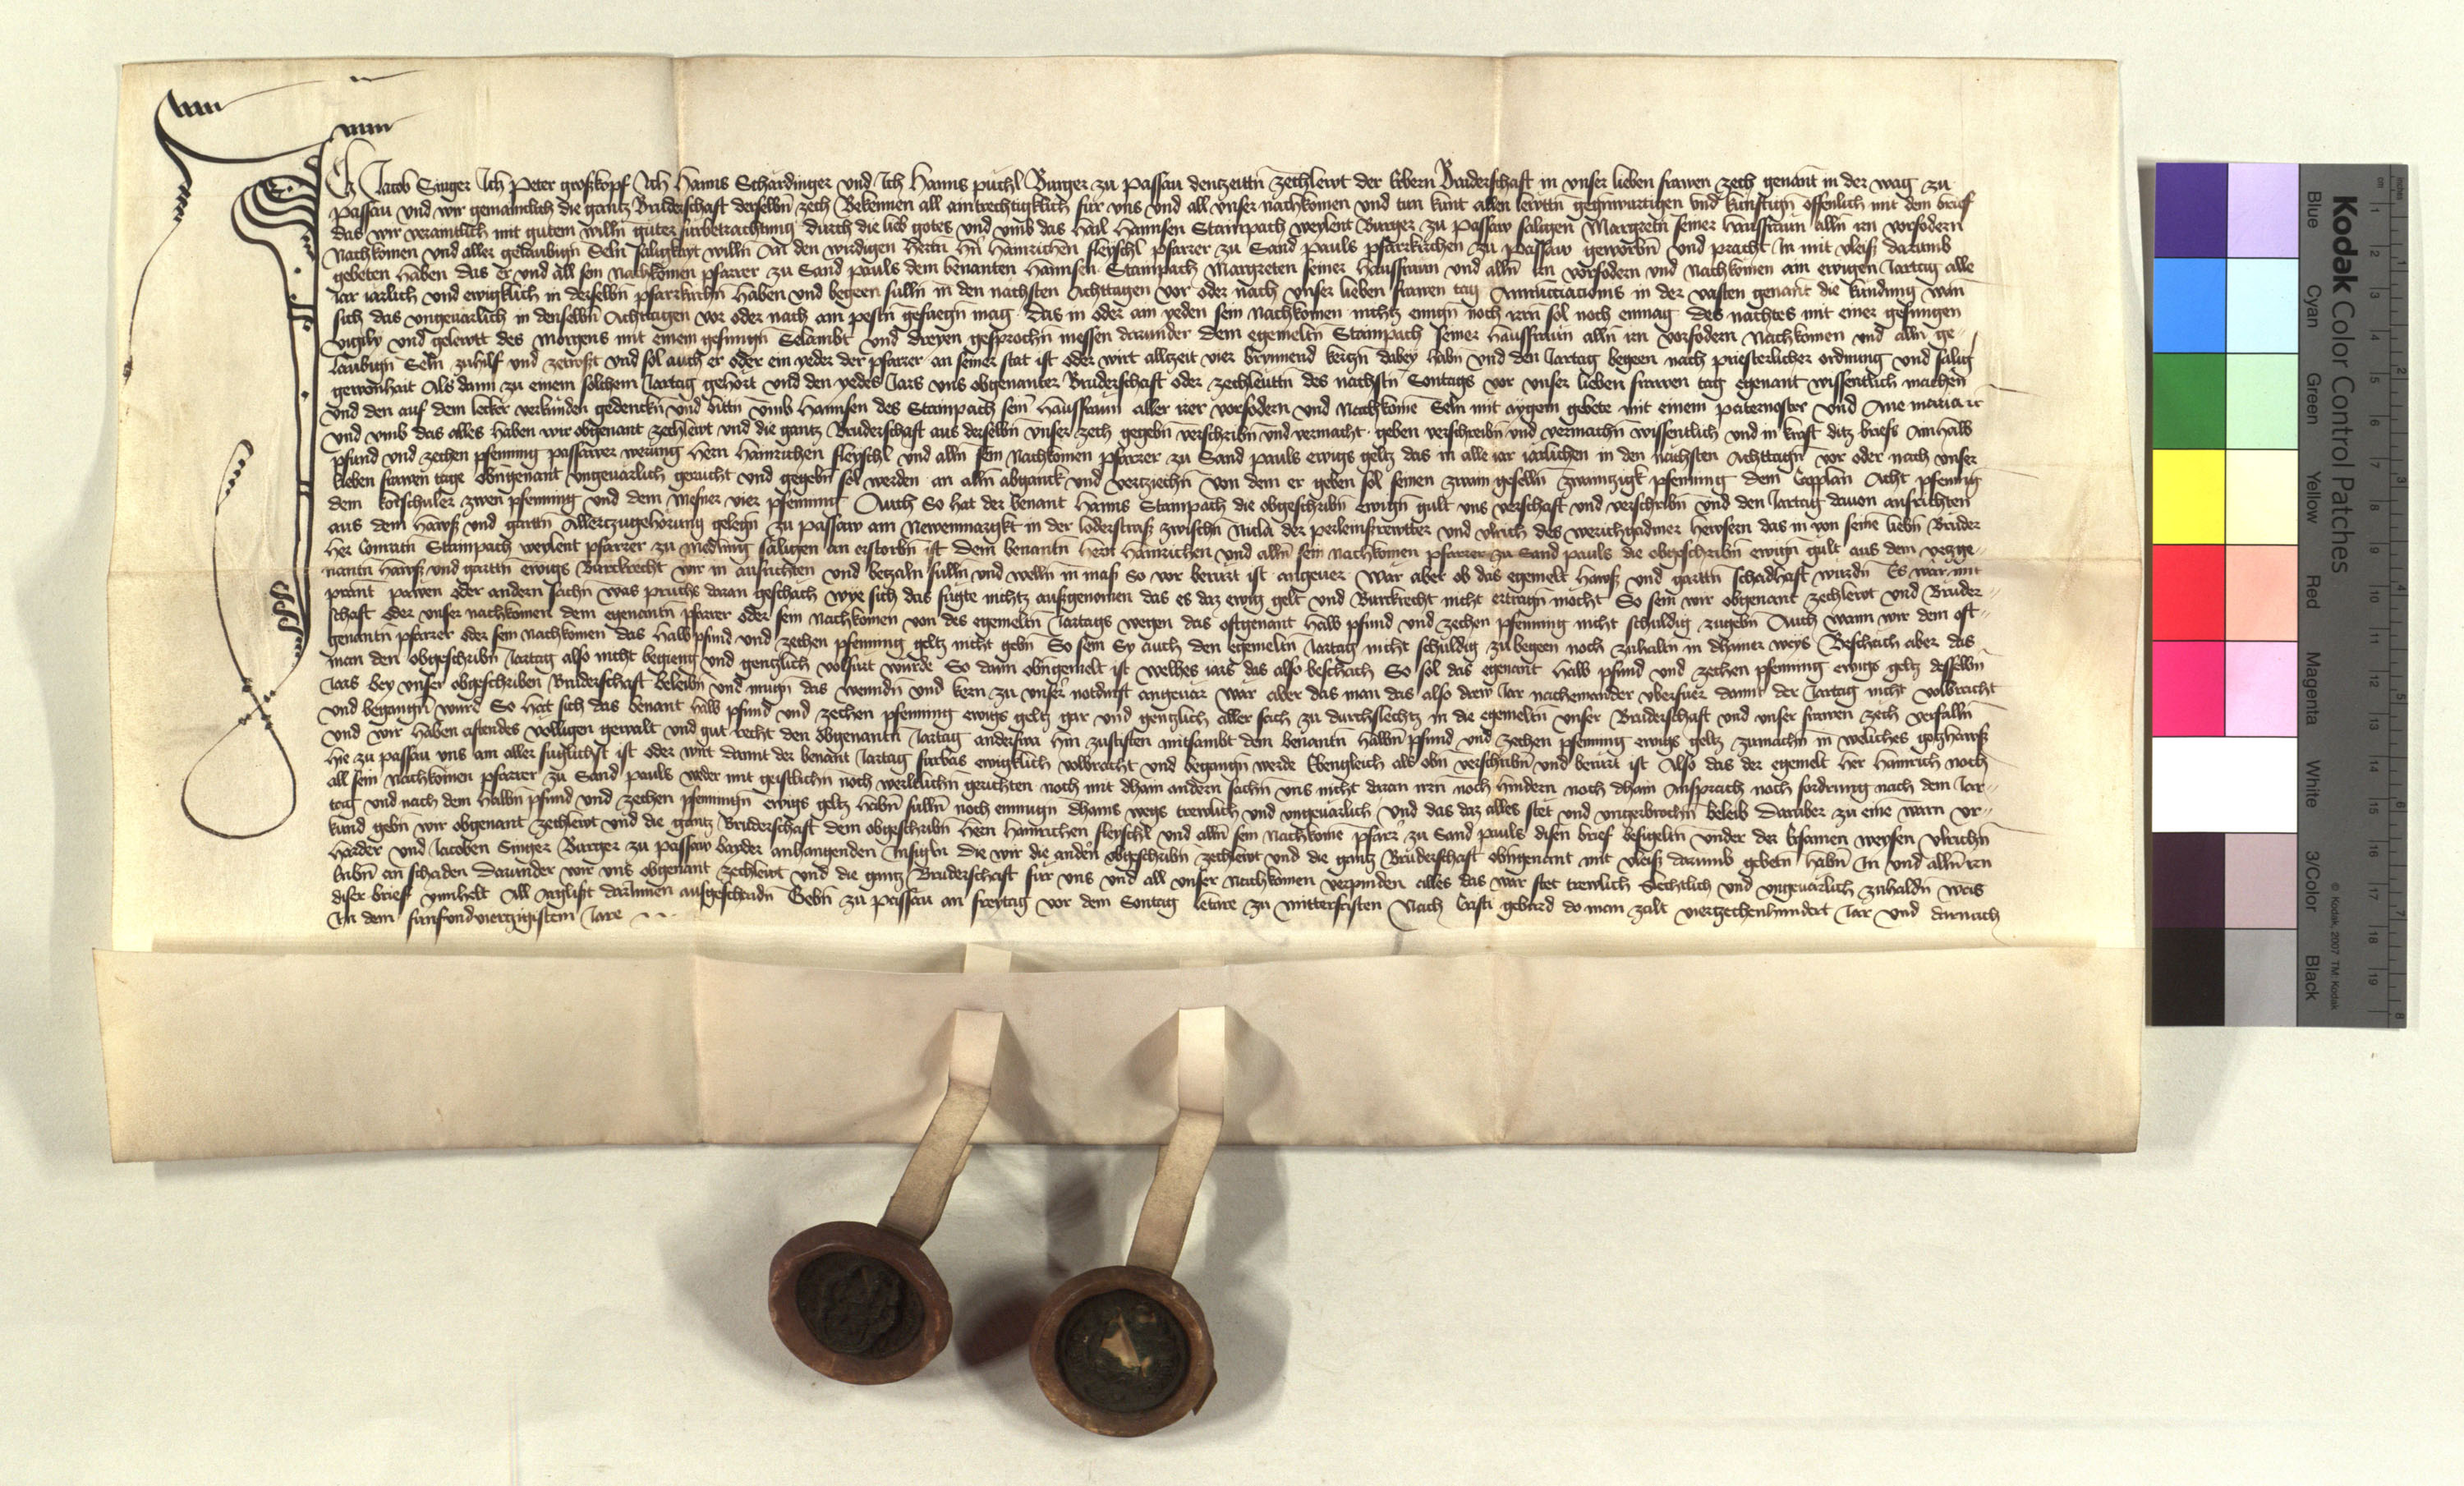 Ich Jacob Singer Ich Peter großkopf Ich Hanns Schardinger und Ich Hanns puchl Burger zu Passau dentzeittn zechlewt der Erbern Bruderschaft in unser lieben frawen zech genant in der wag zu
Passau und wir gemainclich die gantz Bruderschaft derselbn zech Bekennen all aintrechtigklich fur uns und all unser nachkomen und tun kunt allen lewttn gegnwurtigen und kunftign offenlich mit dem brief
das wir veraintlich mit gutem willn guter furbetrachtung durch die lieb gotes und umb das Hail Hannsen Stampach weylent Burger zu Passaw saligen Margretn seiner Haussfraun allin irn vorfodern
Nachkomen und aller gelaubign Seln saligkayt willn An den wirdigen Herrn Hn Hainrichen fleyschl Pfarrer zu Sand Pauls pfarrkirchen zu Passaw geworbn und pracht In mit vleiss darumb
gebeten Haben das Er und all sein Nachkomen pfarrer zu Sand pauls dem benanten Hannsen Stampach Margreten seiner Haussfraun und alln irn vorfodern und Nachkomen ain ewigen Jartag alle
Jar iarlich und ewigklich in derselbn pfarrkirchn Haben und begeen sulln in den nachsten Achttagen vor oder nach unser lieben frawen tag Annuncciacionis in der vasten genant die kundung wan
sich das ungeuarlich in denselbn Achttagen vor oder nach am pestn gefuegn mag das in oder ain yeden sein Nachkomen nichtz enngn noch irrn sol noch enmag des nachtes mit einer gesungen
vigily und gelewtt des Morgens mit einem gesungn Selambt und dreyen gesprochn messen darunder dem egemeltn Stampach seiner Haussfraun alln irn vorfodern Nachkomen und alln ge-
laubign Seln zuhilf und zetrost und sol auch er oder ein yeder der pfarrer an seiner stat ist oder wirt alltzeit vier brynnend kertzn dabey habn und den Jartag begeen nach priesterlicher ordnung und salig
gewonhait Als dann zu einem solchem Jartag gehort und den yedes Jars uns obgenanter Bruderschaft oder zechleuttn des nachstn Sontags vor unser lieben frawen tag egenant wissentlich machen
und den auf dem lecker verkunden gedenckn und bittn umb Hannsen des Stampach sein Haussfraun aller irer vorfodern und Nachkome Seln mit aygem gebete mit einem paternoster und Aue maria
und umb das alles Haben wir obgenant zechlewt und die gantz Bruderschaft aus derselbn unser zech gegebn verschribn und vermacht geben verschreibn und vermachn wissentlich und in kraft ditz briefs ain Halb
pfund und zechen pfenning passawer werung Hern Hainrichen fleyschl und alln sein Nachkomen pfarrer zu Sand pauls ewigs geltz das in alle iar iarlichen in den nachsten Achttagn vor oder nach unser
lieben frawen tage obingenant ungeuarlich geraicht und gegebn sol werden an alln abganck und vertziechn von dem er geben sol seinen zwain gesellin zwaintzigk pfenning dem Capplan Acht pfennig
dem korschuler zwen pfenning und dem Mesner vier pfenning Auch So hat der benant Hanns Stampach die obgeschribn ewign gult uns verschaft und verschribn und den Jartag dauon aufrichten
aus dem Hawss und gartn Allertzugehorung gelegn zu passaw am Newenmargkt in der loderstrass zwischn Nicla der perleinstrewtter und Ulrich des werichgadmer Hewsern das in von seine liebn Bruder
Her Conratn Stampach weylent pfarrer zu medling saligen an erstorbn ist Dem benantn Hern Hainrichen und alln sein nachkomen pfarrer zu Sand pauls die obgeschribn ewign gult aus dem yetzge-
nantn Hawss und garttn ewigs Burckrecht wir in aufrichten und betzaln sulln und welln in mass So vor berurt ist angeuer War aber ob das egemelt Hawss und garttn schadhaft wurdn Es war mit
prant pawen oder andern sachn was pruchs daran geschach wye sich das fugte nichtz ausgenomen das es daz ewig gelt und Burckrecht nicht ertragn mocht So sein wir obgenant zechlewt und Bruder-
schaft oder unser nachkomen dem egenantn pfarrer oder sein Nachkomen von des egemeltn Jartags wegen das oftgenant Halb pfund und zechen pfenning nicht schuldig zugebn Auch wann wir dem oft-
genantn pfarrer oder sein Nachkomen das Halb pfund und zechen pfenning geltz nicht gebn So sein Sy auch den egemeltn Jartag nicht schuldig zubegeen noch zuhaltn in dhainer weys Beschach aber das
man den obgeschribn Jartag also nicht begieng und gentzlich volfurt wurde So dann obingemelt ist welhes iars das also beschach So sol das egenant Halb pfund und zechen pfenning ewigs geltz desselbn
Jars bey unser obgeschriben Bruderschaft beleibn und mugn das wenndn und kern zu unser notdurft angeuar War aber das man das also drew Jar nacheinander ubersuer damit der Jartag nicht volbracht
und begangn wurd So hat sich das benant Halb pfund und zechen pfenning ewigs geltz gar und gentzlich aller sach zu durchslechtz in die egemeltn unser Bruderschaft und unser frawen zech verfalln
und wir haben astendes volligen gewalt und gut recht den obgenantn Jartag anderswa hin zustiften mitsambt dem benantn Halbn pfund und zechen pfenning ewigs geltz zumachn in welhes gotzhawss
Hie zu passau uns am aller fuglichst ist oder wirt damit der benant Jartag furbas ewigklich volbracht und begangn werde Ebengleich als obn verschribn und berurt ist Also das der egemelt Her Hainrich noch
all sein nachkomen pfarrer zu Sand pauls weder mit geistlichn noch werltlichn gerichten noch mit dhain andern sachn uns nicht daran irrn noch hindern noch dhain Ansprach noch fordrung nach dem Jar-
tag und nach dem Halbn pfund und zechen pfenningn ewigs geltz habn sulln noch enmugn dhains wegs trewlich und ungeuarlich und das daz alles stet und untzerbrochn beleib Daruber zu eine warn ur-
kund gebn wir obgenant zechlewt und die gantz Bruderschaft dem obgeschribn Hern Hainrichen fleyschl und alln sein Nachkome pfarr zu Sand pauls disen brief besigeltn under der Ersamen weysen Ulrichn
Harder und Jacoben Singer Burger zu passaw bayder anhangenden Insigln Die wir die andn obgeschribn zechlewt und die gantz Bruderschaft obingenant mit vleiss darumb gebetn habn In und alln irn
Eribn an schaden Darunder wir uns obgenant zechlewt und die gantz Bruderschaft fur uns und all unser Nachkomen verpinden alles das war stet trewlich slechtlich und ungeuarlich zuhaldn was
diser brief innhelt All Arglist darinnen ausgeschaidn Gebn zu passau an freytag vor dem Sontag letare zu mitterfasten Nach Cristi geburd do man zalt viertzechenhundert Jar und darnach
In dem funfundviertzigistem Jare
Kodak Color Control Patches
Blue Cyan Green Yellow Red Magenta White 3/Color Black
© Kodak, 2007 TM: Kodak
inches 1 2 3 4 5 6 7 8
cm 1 2 3 4 5 6 7 8 9 10 11 12 13 14 15 16 17 18 19